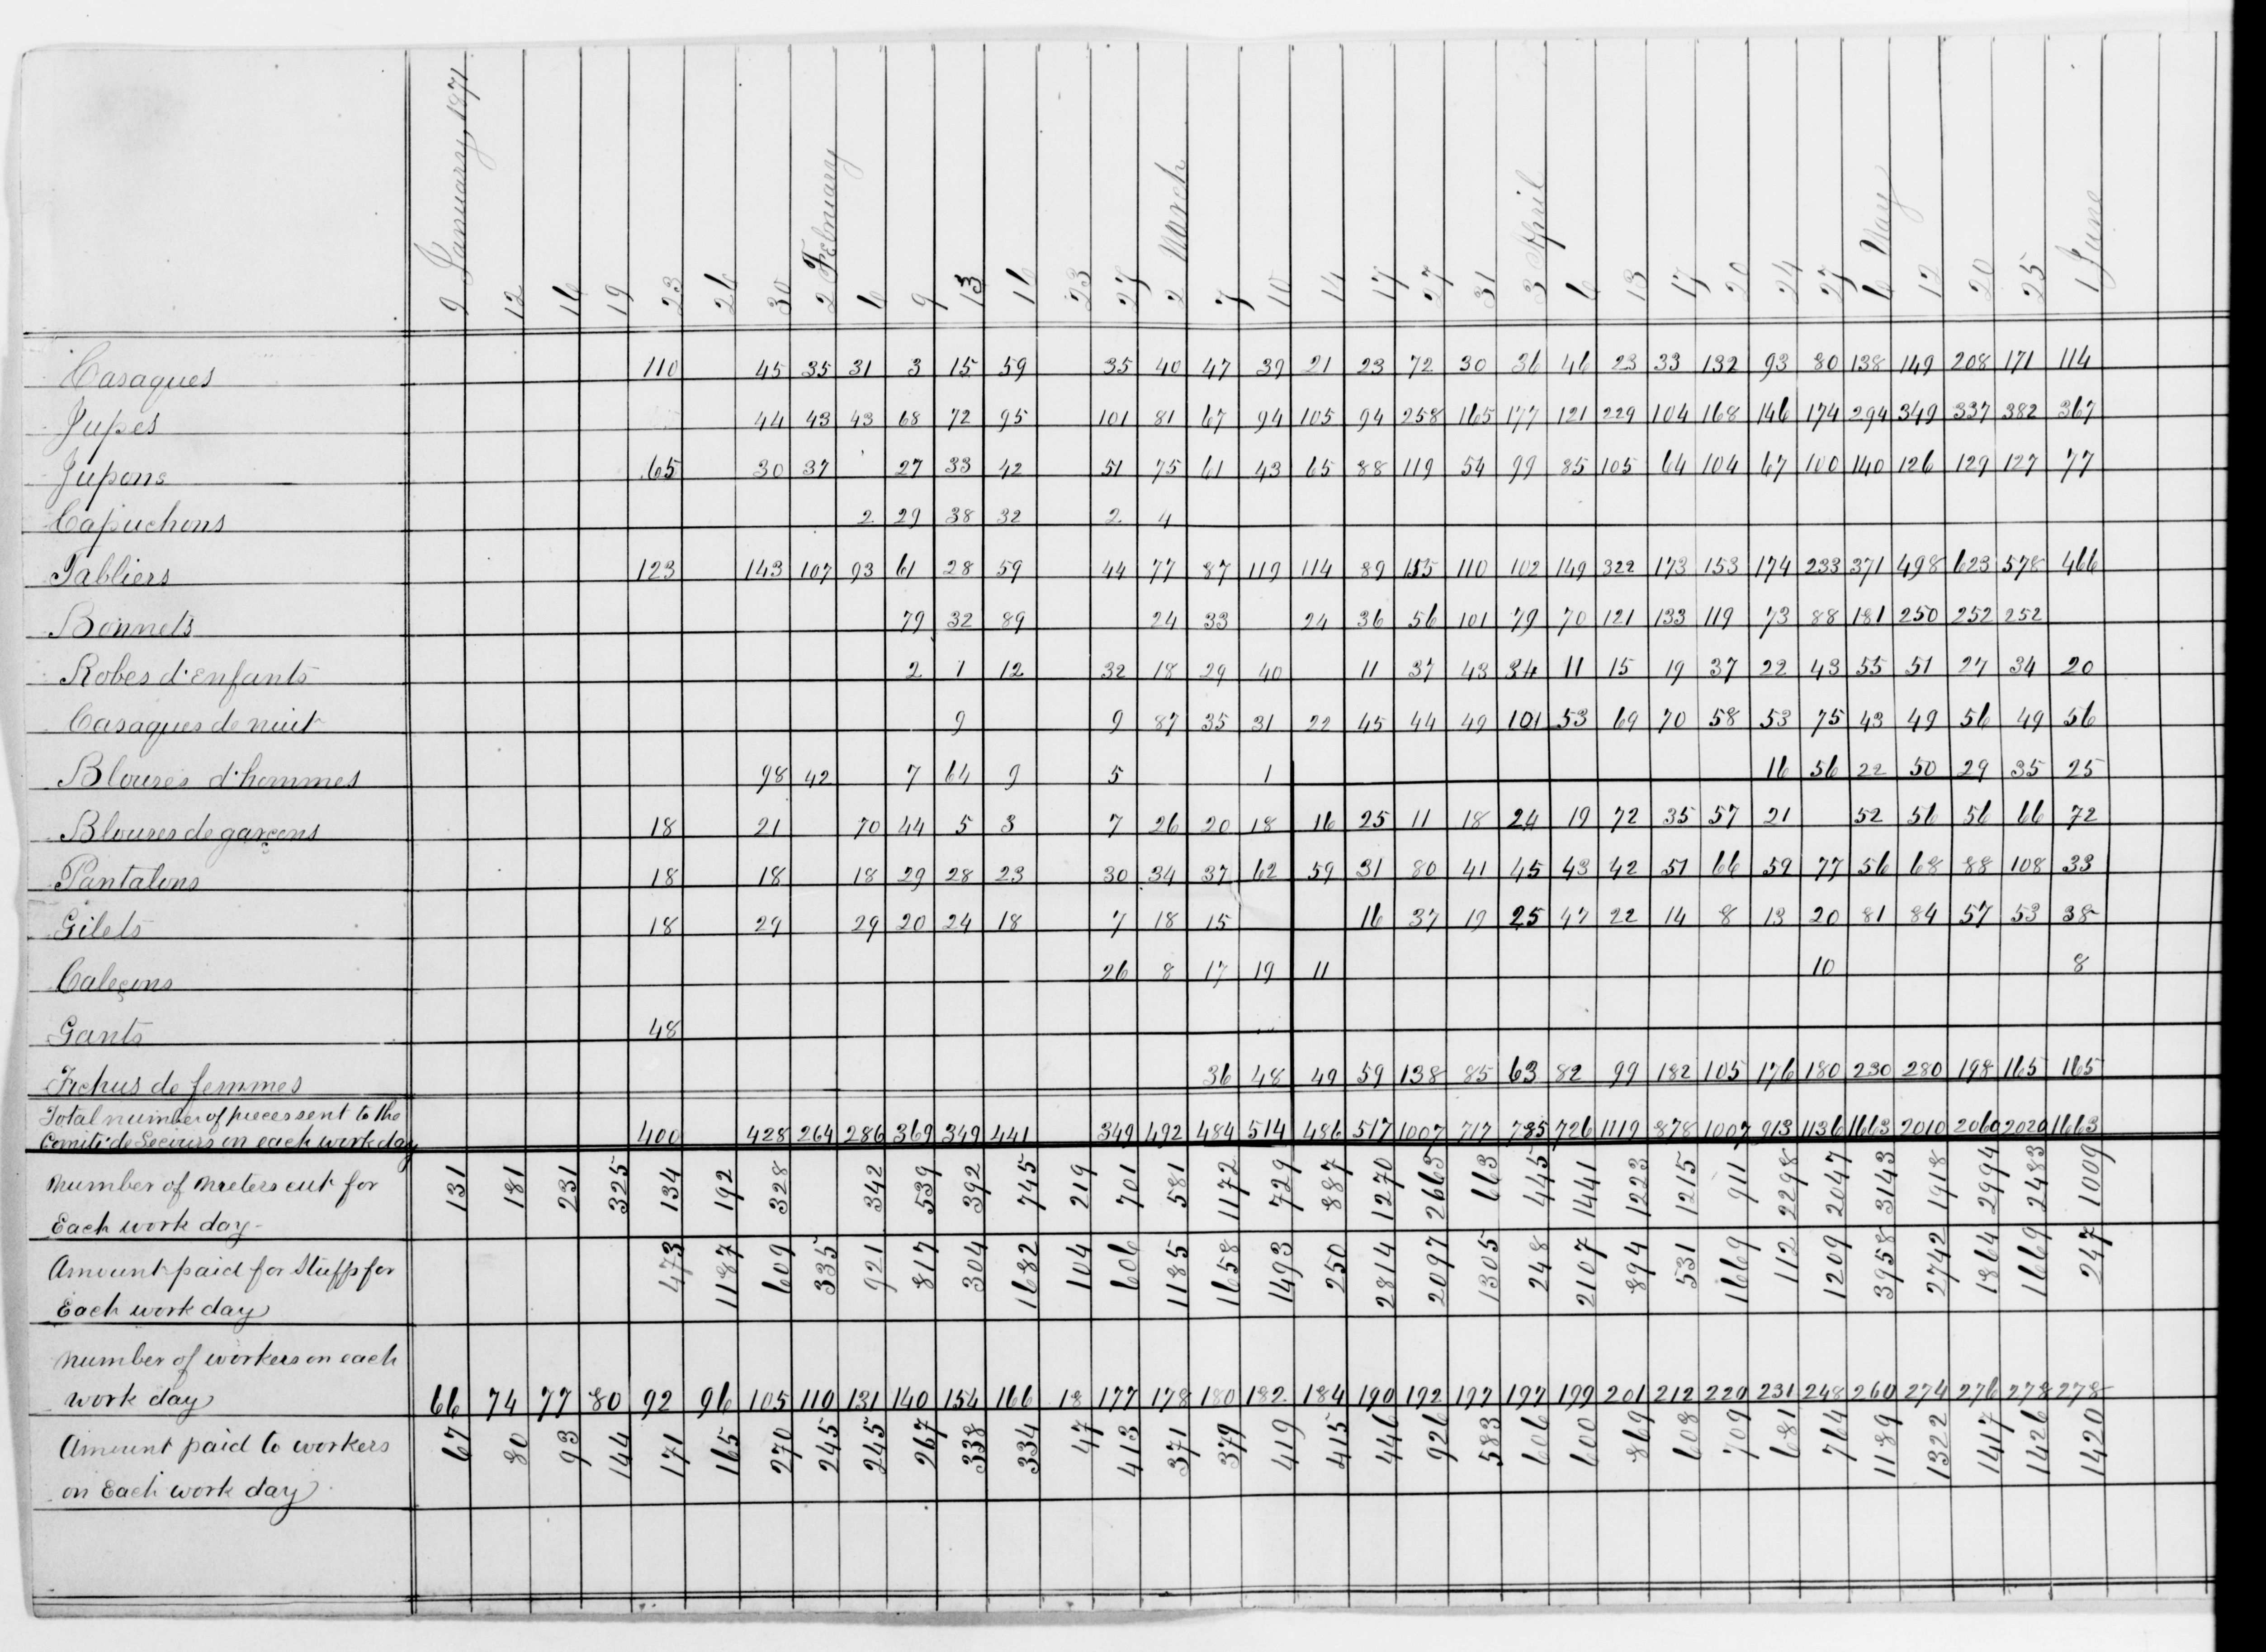 9 January, 1871 12 16 19 23 26 30 2 February 6 9 13 16 23 27 2 March 7 10 14 17 27 31 3 April 6 13 17 20 24 27 6 May 12 20 25 1 June
Casaques 110 45 35 31 3 15 59 35 40 47 39 21 23 72 30 36 46 23 33 132 93 80 138 149 208 171 114
Jupes 44 43 43 68 72 95 101 81 67 94 105 94 258 165 177 121 229 104 168 146 174 294 349 337 382 367
Jupons 65 30 37 27 33 42 51 75 61 43 65 88 119 54 99 85 105 64 104 67 100 140 126 129 127 77
Capuchons 2 29 38 32 2 4
Tabliers 123 143 107 93 61 28 59 44 77 87 119 114 89 155 110 102 149 322 173 153 174 233 371 498 623 578 466
Bonnets 79 32 89 24 33 24 36 56 101 79 70 121 133 119 73 88 181 250 252 252
Robes d'enfants 2 1 12 32 18 29 40 11 37 43 34 11 15 19 37 22 43 55 51 27 34 20
Casaques de nuit 9 9 87 35 31 22 45 44 49 101 53 69 70 58 53 75 43 49 56 49 56
Blouses d'hommes 98 42 7 64 9 5 1 16 56 22 50 29 35 25
Blouses de garçons 18 21 70 44 5 3 7 26 20 18 16 25 11 18 24 19 72 35 57 21 52 56 56 66 72
Pantalons 18 18 18 29 28 23 30 34 37 62 59 31 80 41 45 43 42 51 66 59 77 56 68 88 108 33
Gilets 18 29 29 20 24 18 7 18 15 16 37 19 25 47 22 14 8 13 20 81 84 57 53 38
Caleçons 26 8 17 19 11 10 8
Gants 48
Fichus de femmes 36 48 49 59 138 85 63 82 99 182 105 176 180 230 280 198 165 165
Total number of pieces sent to the
Comité de Secours on each work day 400 428 264 286 369 349 441 349 492 484 514 486 517 1007 717 785 726 1119 878 1007 913 1136 1663 2010 2060 2020 1663
Number of Meters cut for
Each work day- 131 181 231 325 134 192 328 342 539 392 745 219 701 581 1172 729 887 1270 2665 663 445 1441 1223 1215 911 2298 2047 3143 1918 2994 2483 1009
Amount paid for Stuffs for
Each work day 473 1187 609 335 921 817 304 1682 104 606 1185 1658 1493 250 2814 2097 1305 248 2107 894 531 1669 112 1209 3958 2742 1864 1669 247
Number of workers on each
work day 66 74 77 80 92 96 105 110 131 140 154 166 18 177 178 180 182 184 190 192 197 197 199 201 212 220 231 248 260 274 276 278 278
Amount paid to workers
on Each work day 67 80 93 144 171 165 270 245 245 267 338 334 47 413 371 379 419 415 446 926 583 606 600 869 608 709 681 764 1189 1322 1417 1426 1420